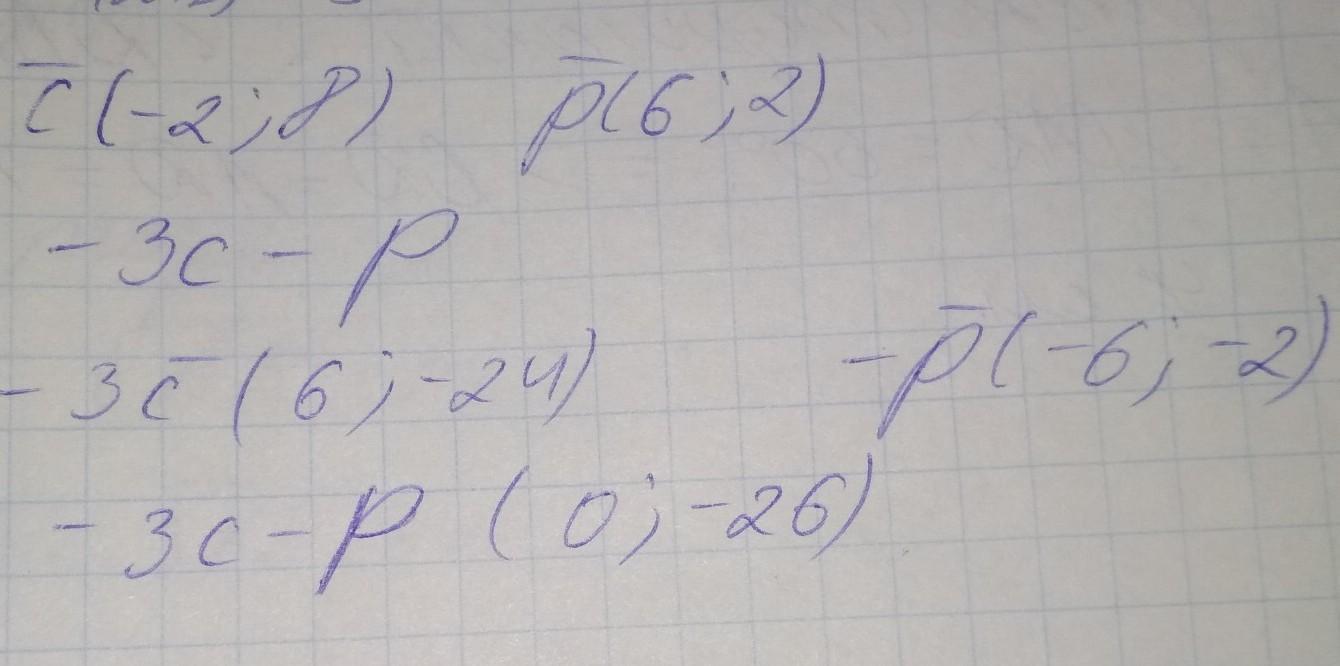 c̅ (-2; 8) p̅(6; 2)
- 3c - p
- 3c̅ (6; -24) -p̅(-6; -2)
- 3c - p (0; -26)